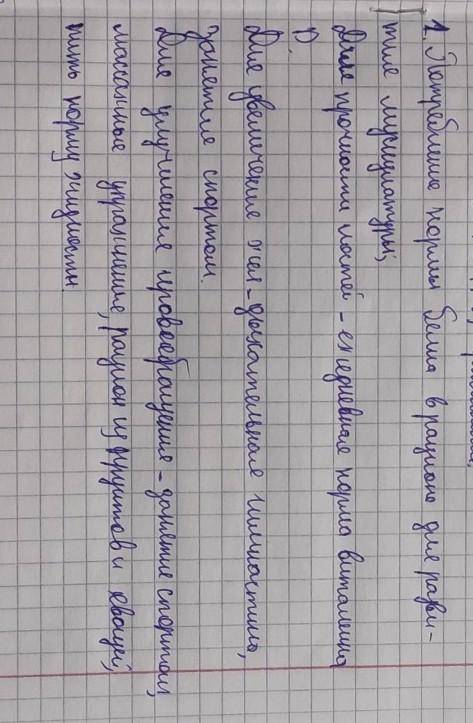 1. Потребление нормы белка в рационе для разви-
тие мускулатуры;
Для прочности костей - ежедневная норма витамина
D.
Для увеличение жел - дыхательная гимнастика,
Занятие спортом.
Для улучшения кровообращение - занятие спортом,
массажные упражнение, рацион из фруктов и овощей,
пить норму жидкости.